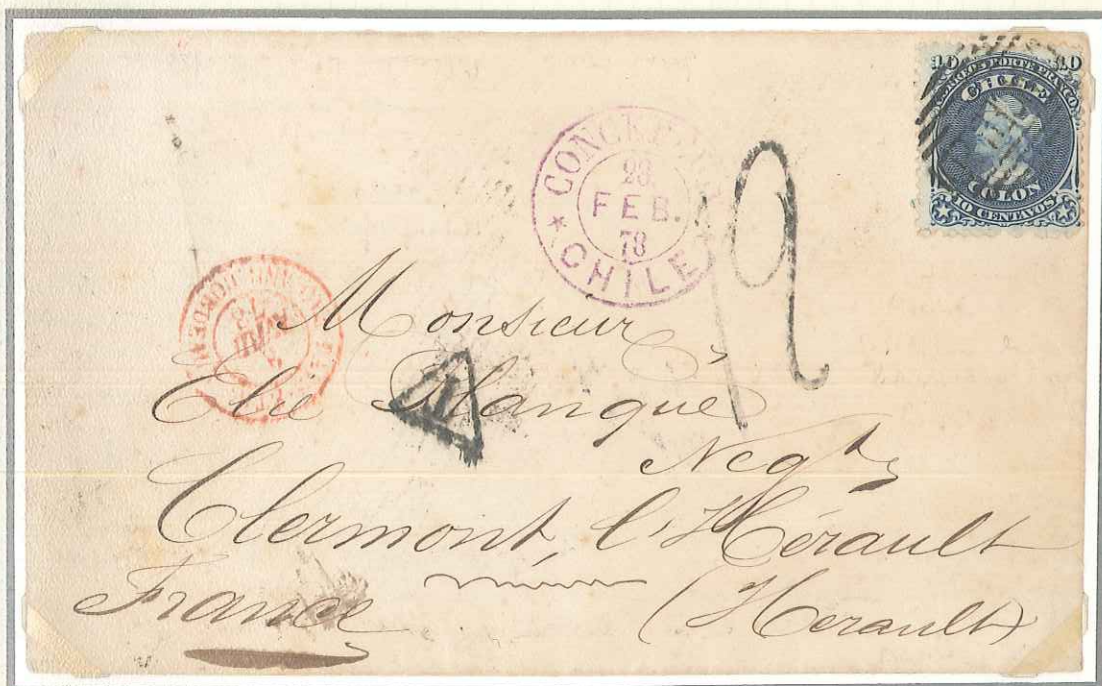 10 10
CORREOS PORTE FRANCO
CHILE
COLON
10 CENTAVOS
28
FEB.
78
CHILE
12
T
Monsieur
Elie Planque
Negt
Clermont, l'Hérault
France (Herault)